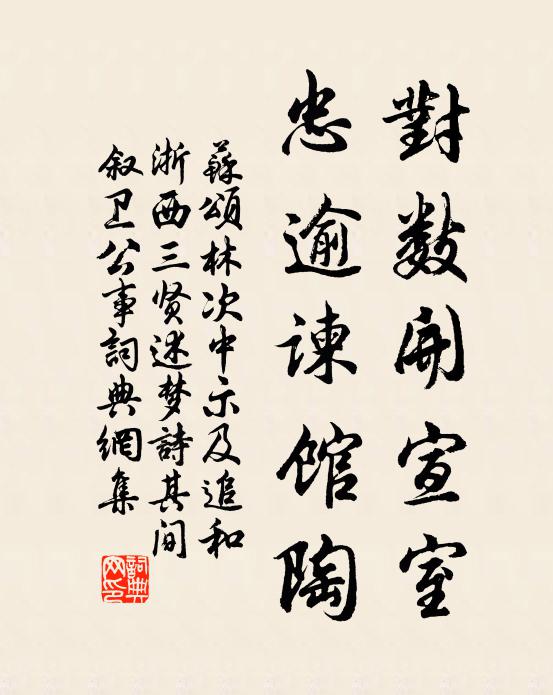 對数開宣室
忠逾諫館陶
蘇頌林次中示及追和
浙西三贤述梦詩其间
叙卫公事詞典網集
詞典网印